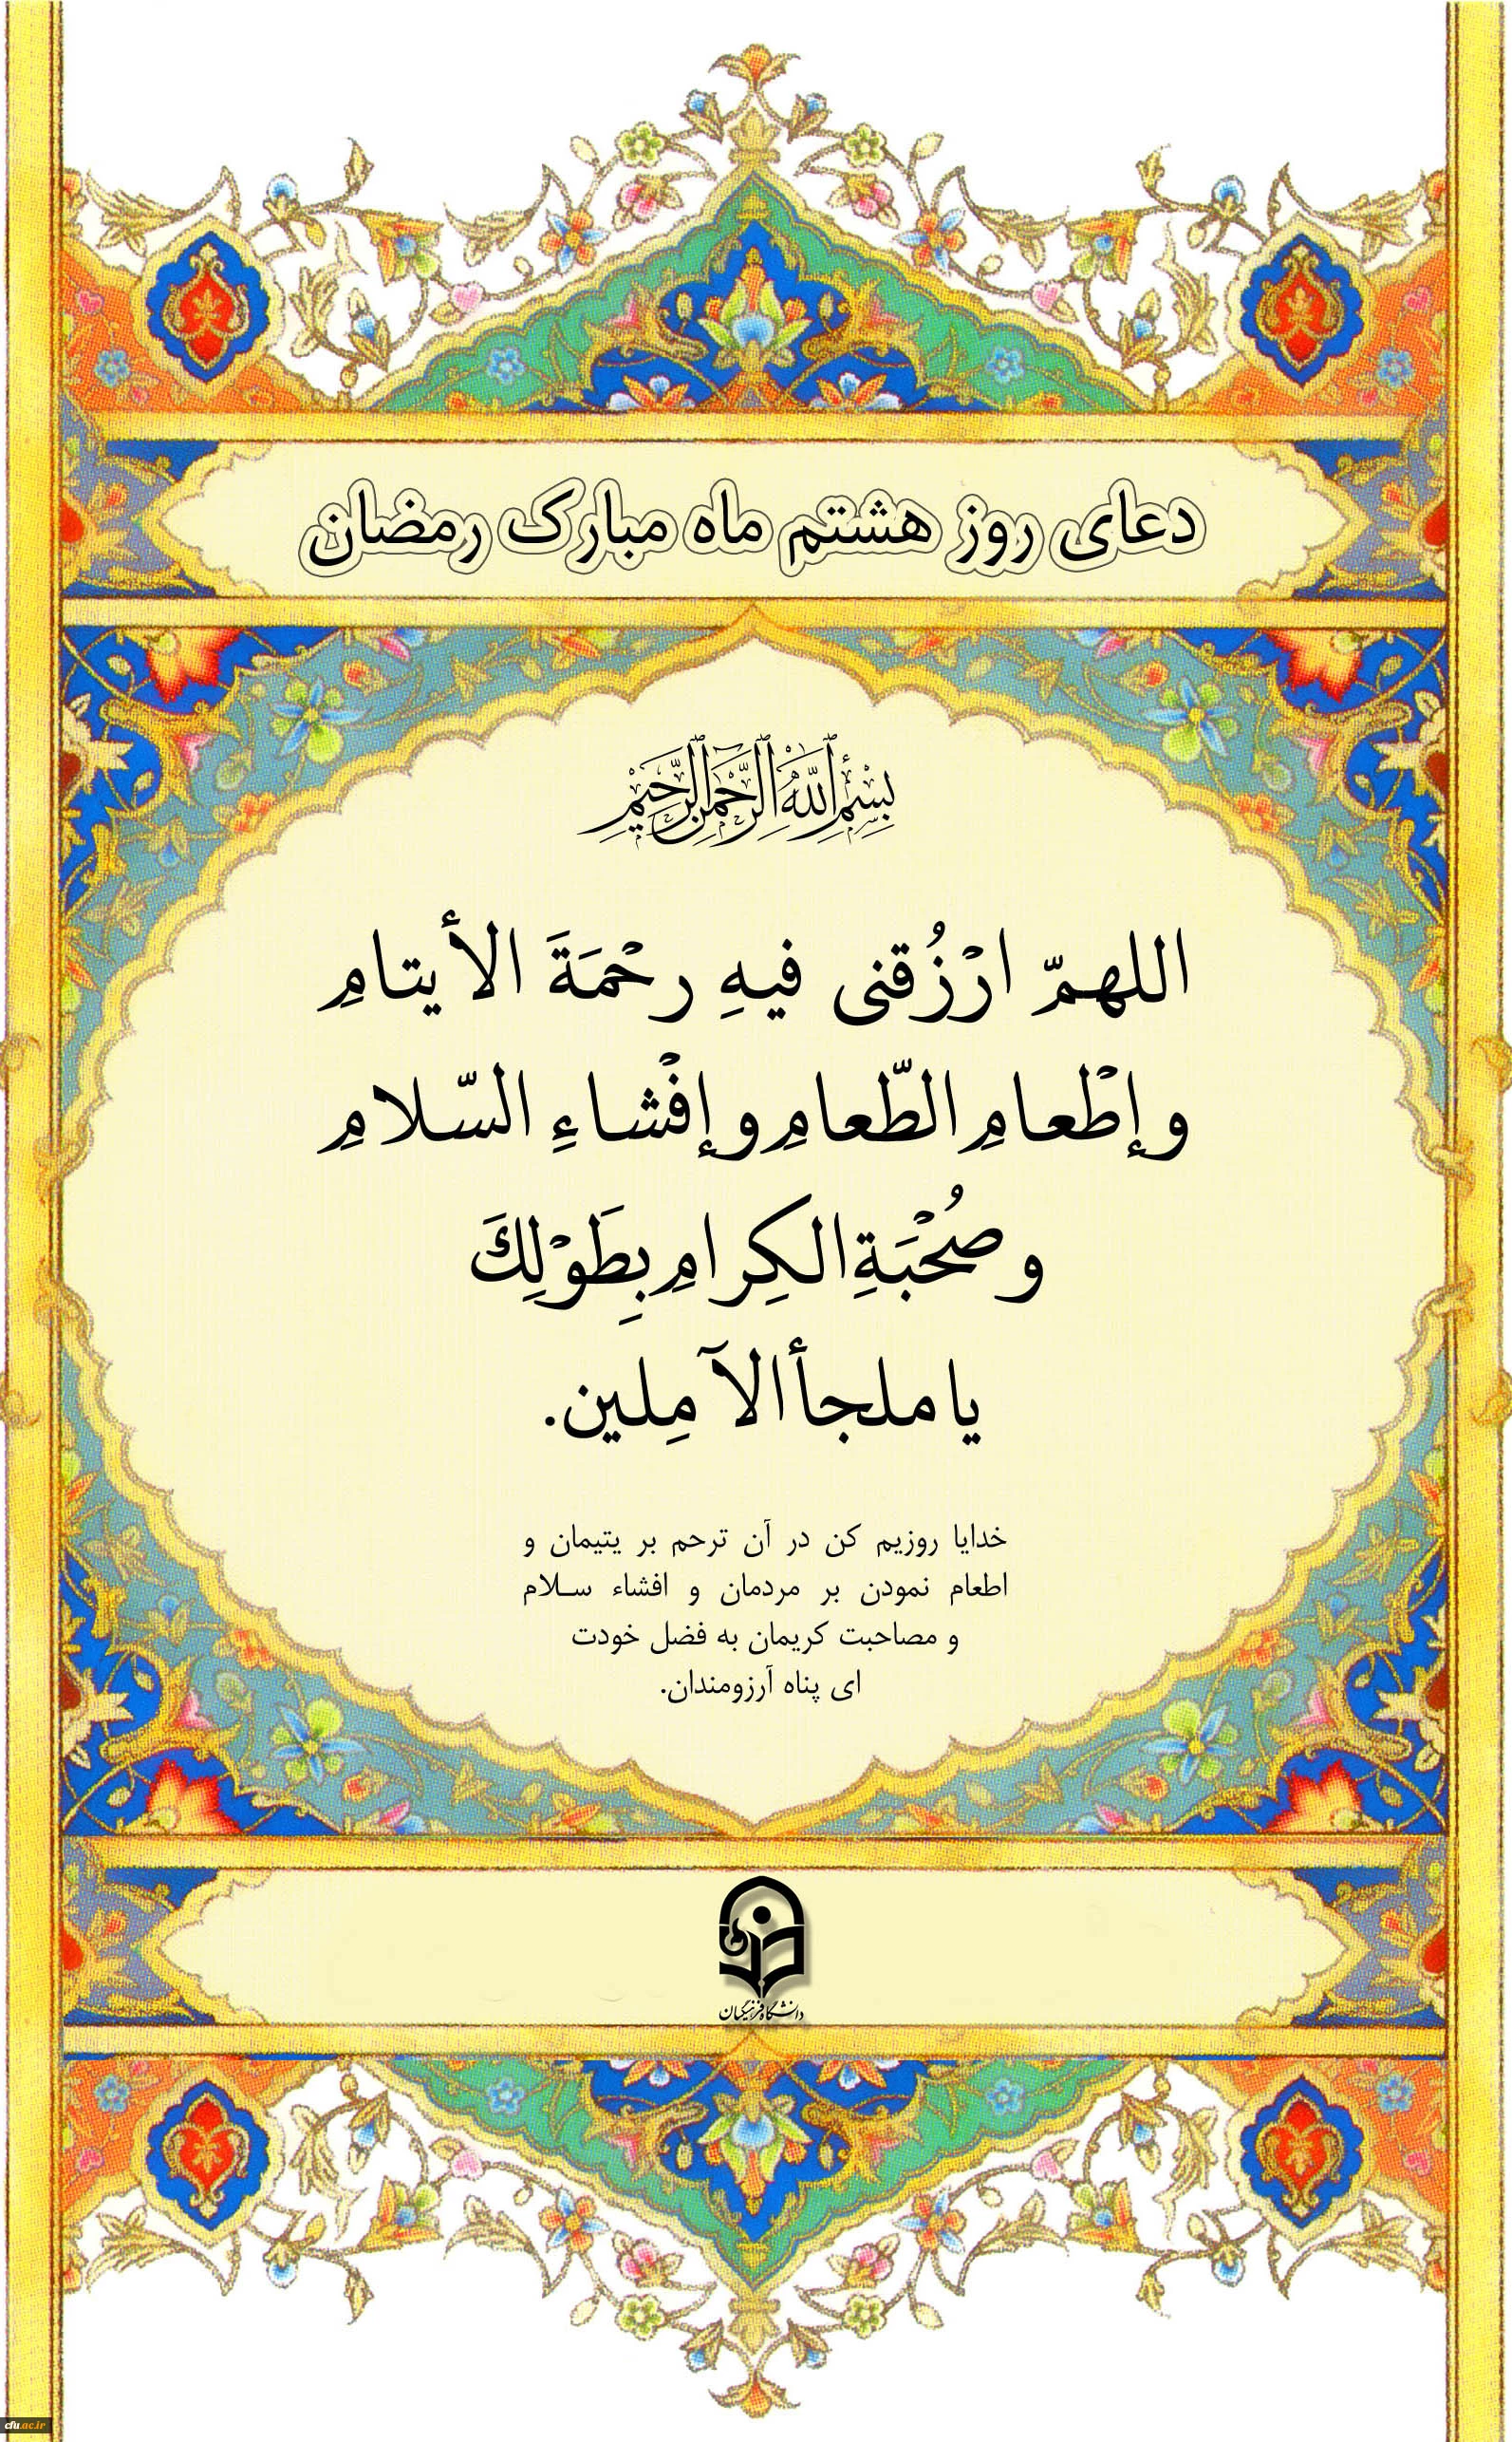 دعای روز هشتم ماه مبارک رمضان
بِسْمِ ٱللَّهِ ٱلرَّحْمَٰنِ ٱلرَّحِيمِ
اللهمّ ارْزُقنی فیهِ رحْمَةَ الأیتامِ
وإطْعامِ الطّعامِ وإفْشاءِ السّلامِ
وصُحْبَةِ الکِرامِ بِطَوْلِكَ
یا ملجأ الآمِلین.
خدایا روزیم کن در آن ترحم بر یتیمان و
اطعام نمودن بر مردمان و افشاء سـلام
و مصاحبت کریمان به فضل خودت
ای پناه آرزومندان.
دانشگاه فرهنگیان
cfu.ac.ir